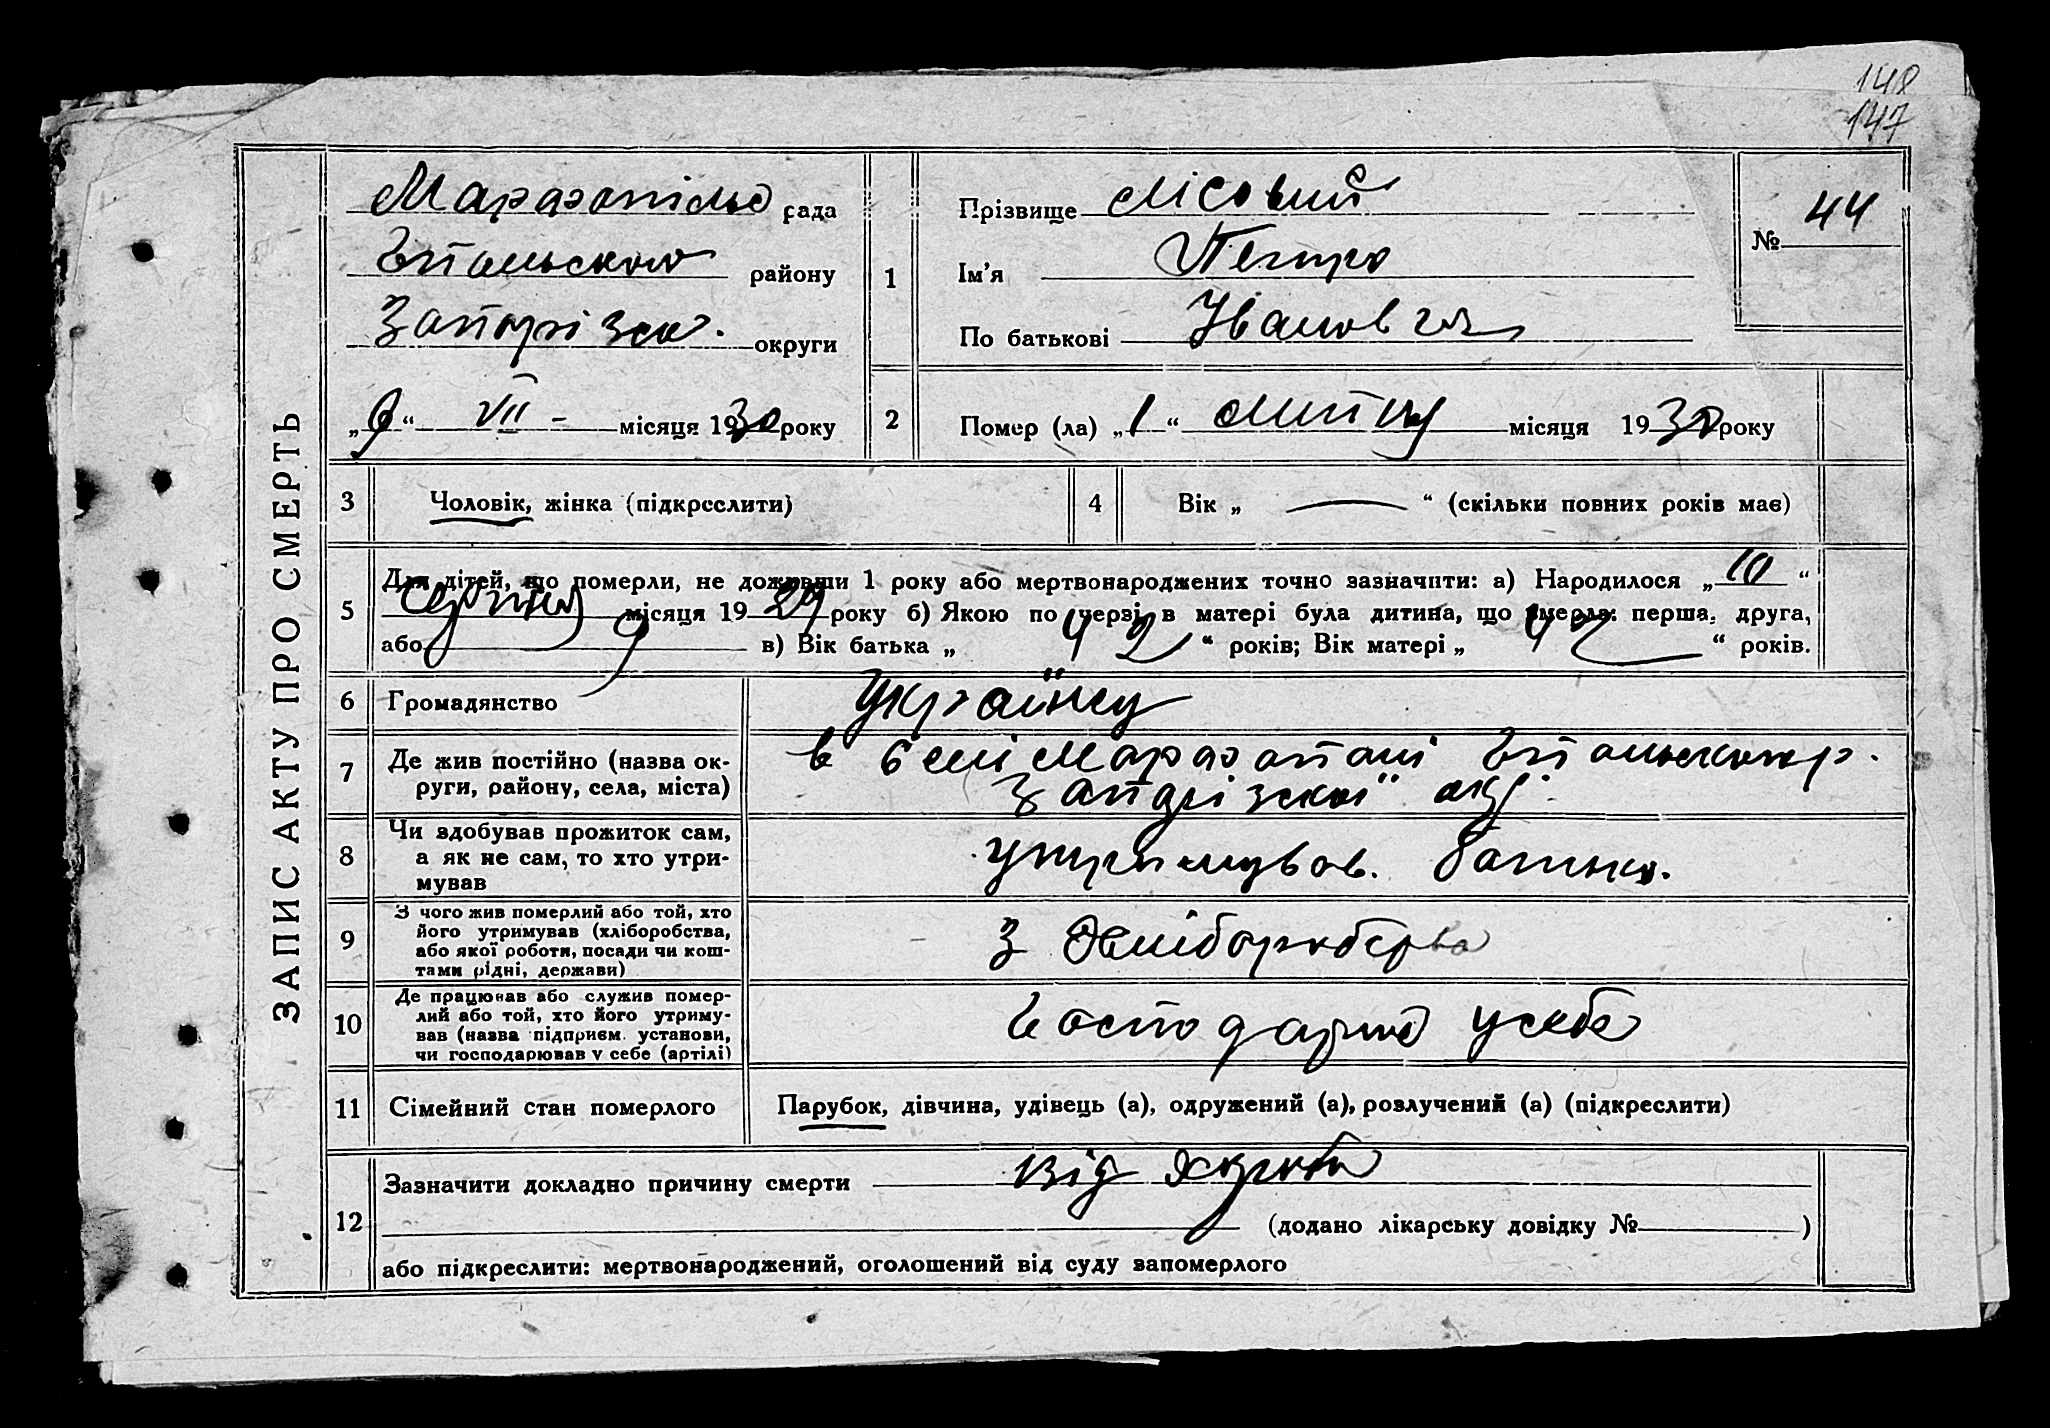 148
147
ЗАПИС АКТУ ПРО СМЕРТЬ
рада
району
округи
„9“ VII – місяця 1930 року
1
Прізвище Лісовий
Ім’я Петро
По батькові Іванович
№ 44
2
Помер (ла) „1“ липня місяця 1930 року
3
Чоловік, жінка (підкреслити)
4
Вік „ — “ (скільки повних років має)
5
Для дітей, що померли, не доживши 1 року або мертвонароджених точно зазначити: а) Народилося „10“
серпня місяця 1929 року б) Якою по черзі в матері була дитина, що вмерла: перша, друга,
або 9 в) Вік батька „42“ років; Вік матері „42“ років.
6
Громадянство
Українец
7
Де жив постійно (назва ок-
руги, району, села, міста)
в селі
Запорізской окр.
8
Чи здобував прожиток сам,
а як не сам, то хто утри-
мував
утримував. батько.
9
З чого жив померлий або той, хто
його утримував (хліборобства,
або якої роботи, посади чи кош-
тами рідні, держави)
з хліборобства
10
Де працював або служив помер-
лий або той, хто його утриму-
вав (назва підприєм. установи,
чи господарював у себе (артілі)
Господарив у себе
11
Сімейний стан померлого
Парубок, дівчина, удівець (а), одружений (а), розлучений (а) (підкреслити)
12
Зазначити докладно причину смерти від
(додано лікарську довідку № )
або підкреслити: мертвонароджений, оголошений від суду запомерлого